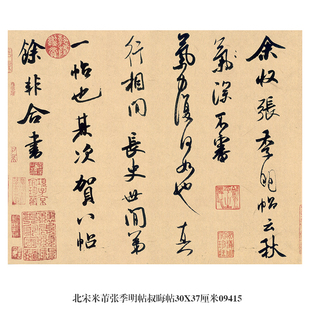 余收張季明帖云秋
氣深不審
氣力復何如也真
行相間長史世間第
一帖也其次賀八帖
餘非合書
北宋米芾张季明帖叔晦帖30X37厘米09415